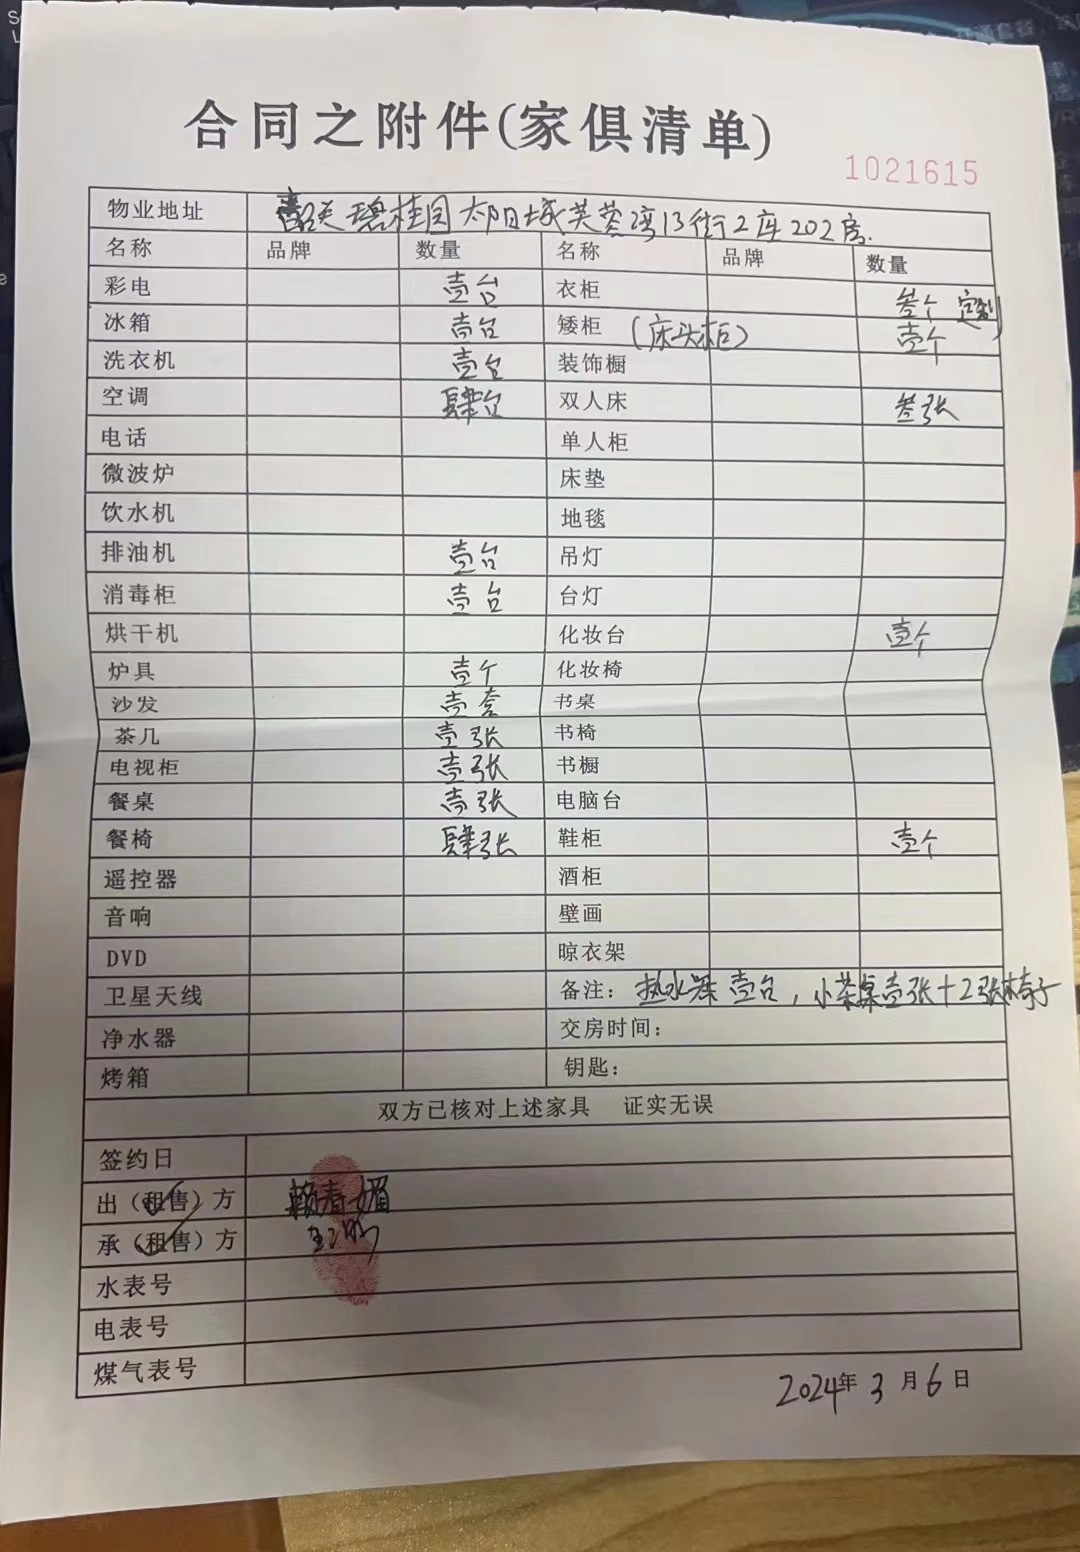 合同之附件(家俱清单)
1021615
物业地址 韶关碧桂园太阳城芙蓉湾13街2座202房.
名称 品牌 数量 名称 品牌 数量
彩电 壹台 衣柜 叁个 定制
冰箱 壹台 矮柜 (床头柜) 壹个
洗衣机 壹台 装饰橱
空调 肆台 双人床 叁张
电话 单人柜
微波炉 床垫
饮水机 地毯
排油机 壹台 吊灯
消毒柜 壹台 台灯
烘干机 化妆台 壹个
炉具 壹个 化妆椅
沙发 壹套 书桌
茶几 壹张 书椅
电视柜 壹张 书橱
餐桌 壹张 电脑台
餐椅 肆张 鞋柜 壹个
遥控器 酒柜
音响 壁画
DVD 晾衣架
卫星天线 备注: 热水器壹台, 小茶桌壹张+2张椅子
净水器 交房时间:
烤箱 钥匙:
双方已核对上述家具 证实无误
签约日
出(租售)方 赖春媚
承(租售)方
水表号
电表号
煤气表号
2024年3月6日